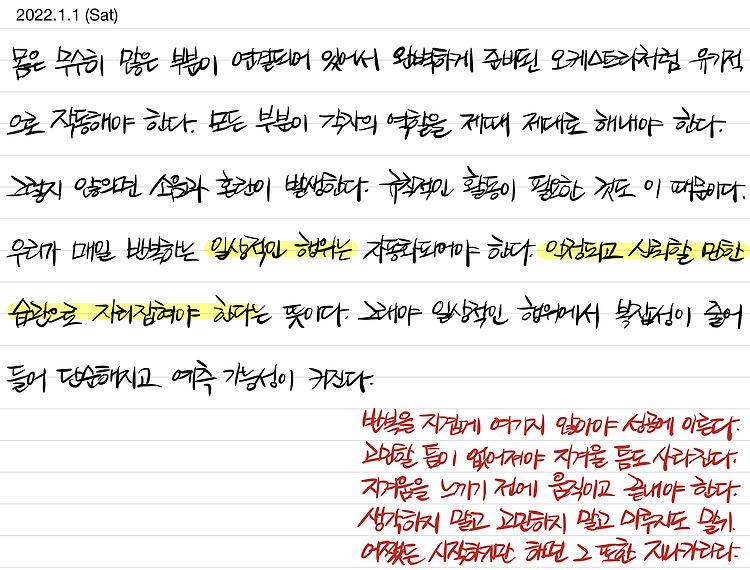 2022.1.1 (Sat)
몸은 무수히 많은 부분이 연결되어 있어서 완벽하게 준비된 오케스트라처럼 유기적
으로 작동해야 한다. 모든 부분이 각자의 역할을 제때 제대로 해내야 한다.
그렇지 않으면 소음과 혼란이 발생한다. 규칙적인 활동이 필요한 것도 이 때문이다.
우리가 매일 반복하는 일상적인 행위는 자동화되어야 한다. 안정되고 신뢰할 만한
습관으로 자리잡혀야 한다는 뜻이다. 그래야 일상적인 행위에서 복잡성이 줄어
들어 단순해지고 예측 가능성이 커진다.
반복을 지겹게 여기지 않아야 성공에 이른다.
고민할 틈이 없어져야 지겨울 틈도 사라진다.
지겨움을 느끼기 전에 움직이고 끝내야 한다.
생각하지 말고 고민하지 말고 미루지도 말기.
어쨌든 시작하기만 하면 그 또한 지나가리라.